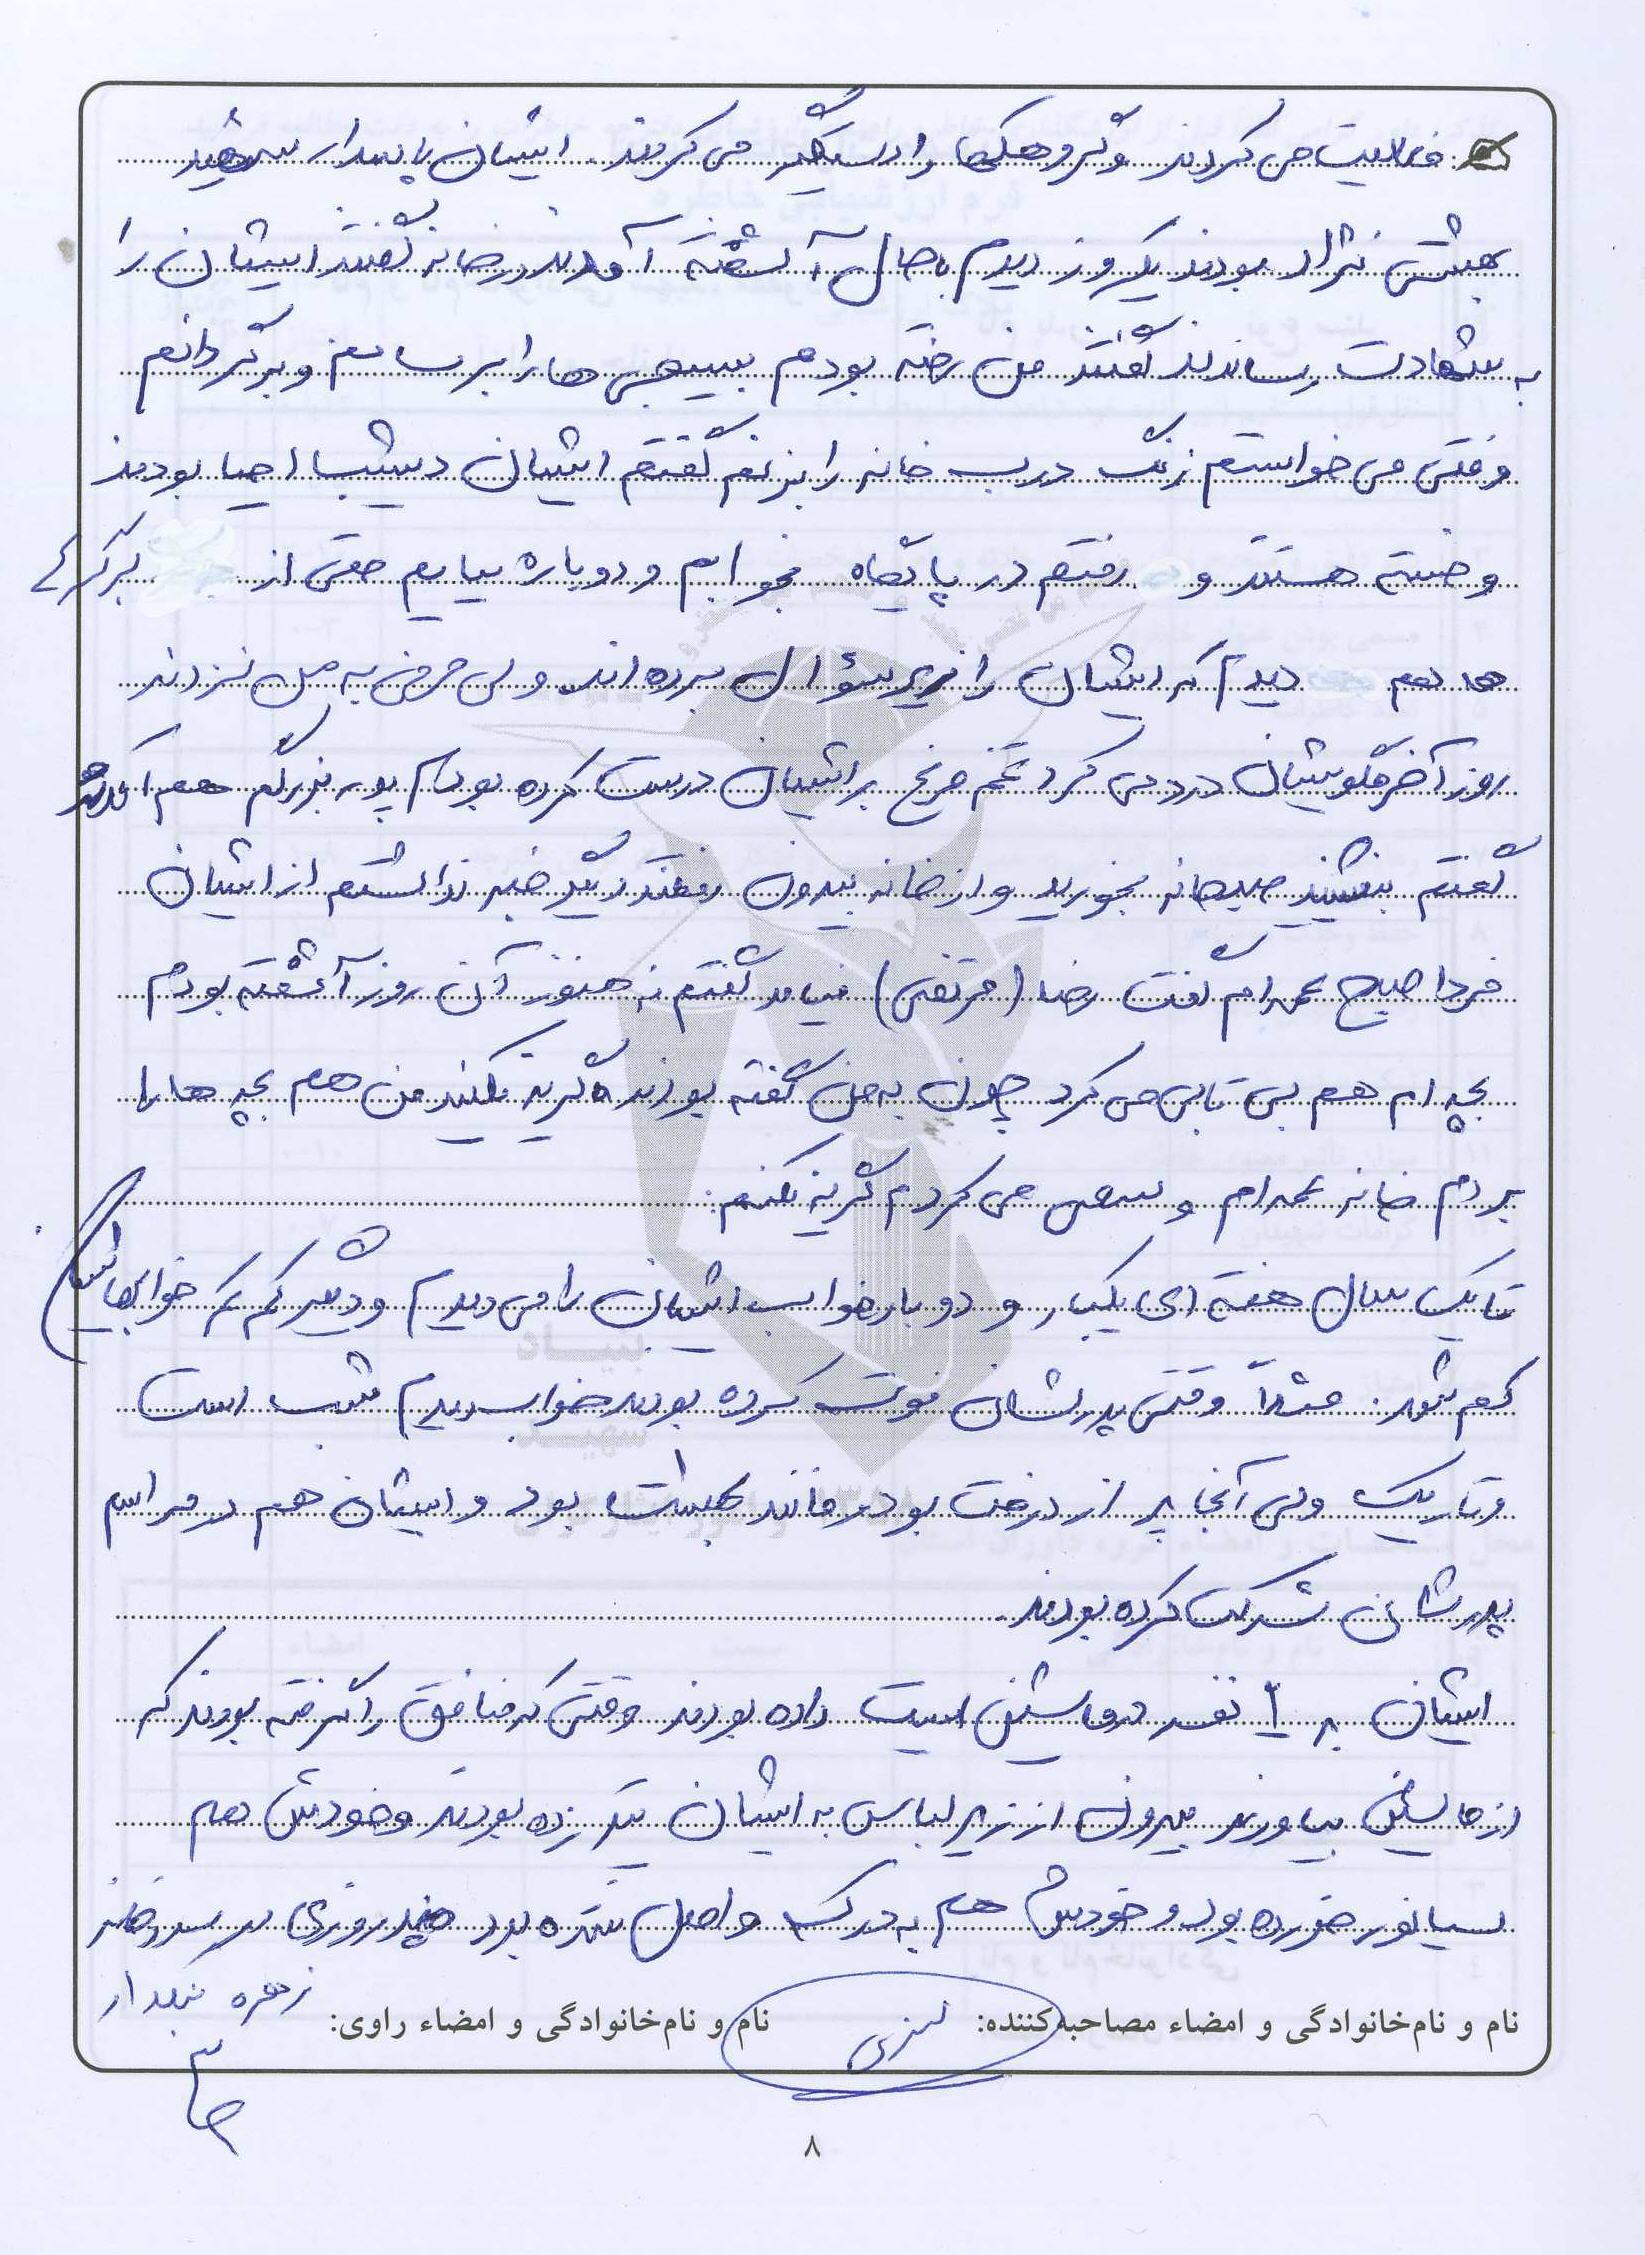 فعالیت می کردند و گروهکها را دستگیر می کردند. ایشان پاسدار شهید
بهشتی نژاد بودند یکروز دیدم با حال آشفته آمدند در خانه گفتند ایشان را
به شهادت رساندند گفتند من رفته بودم بسیجی ها را برسانم و برگردانم
وقتی می خواستم زنگ درب خانه را بزنم گفتم ایشان دیشب احیا بودند
و خسته هستند و رفتم در پایگاه بخوابم و دوباره بیایم حتی از
هم دیدم که ایشان را زیر سؤال برده اند ولی حرفی به من نزدند
روز آخر گلویشان درد می کرد تخم مرغ برایشان درست کرده بودم پدربزرگم هم آمدند
گفتم بنشینید صبحانه بخورید و از خانه بیرون رفتند دیگر خبر نداشتم از ایشان
فردا صبح عمه ام گفت رضا (مرتضی) نیامد گفتم نه هنوز آن روز آشفته بودم
بچه ام هم بی تابی می کرد چون به من گفته بودند گریه نکنید من هم بچه ها را
بردم خانه عمه ام و سعی می کردم گریه نکنم.
تا یک سال هفته ای یکبار و دو بار خواب ایشان را می دیدم و دیگر کم کم خوابهایشان
کم شد. مثلاً وقتی پدرشان فوت کرده بودند خواب دیدم شب است
و تاریک ولی آنجا پر از درخت بود و مانند بهشت بود و ایشان هم در مراسم
پدرشان شرکت کرده بودند.
ایشان به نفر در ماشین ایست داده بودند وقتی که منافق را گرفته بودند که
از ماشین بیاورند بیرون از زیر لباس به ایشان تیر زده بودند و خودش هم
سیانور خورده بود و خودش هم به درک واصل شده بود چند روزی در سردخانه
نام و نام‌خانوادگی و امضاء مصاحبه‌کننده: نام و نام‌خانوادگی و امضاء راوی: زهره
۸